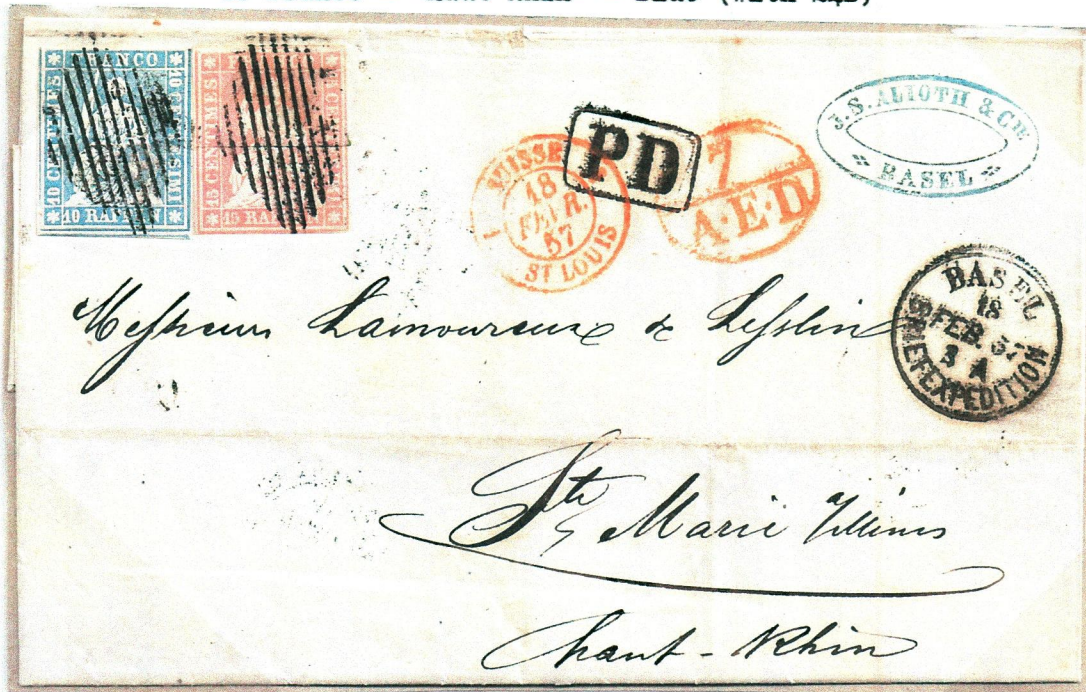 (with
FRANCO
10 CENTIMES
10 CENTESIMI
10 RAPPEN
15 CENTIMES
15 RAPPEN
1 SUISSE
18
FEVR.
57
ST LOUIS
PD
7
A·E·D
J. S. ALIOTH & CIE
BASEL
BASEL
18
FEB. 57
3 A
BRIEFEXPEDITION
Messieurs Lamoureux &
Ste Marie
haut-Rhin